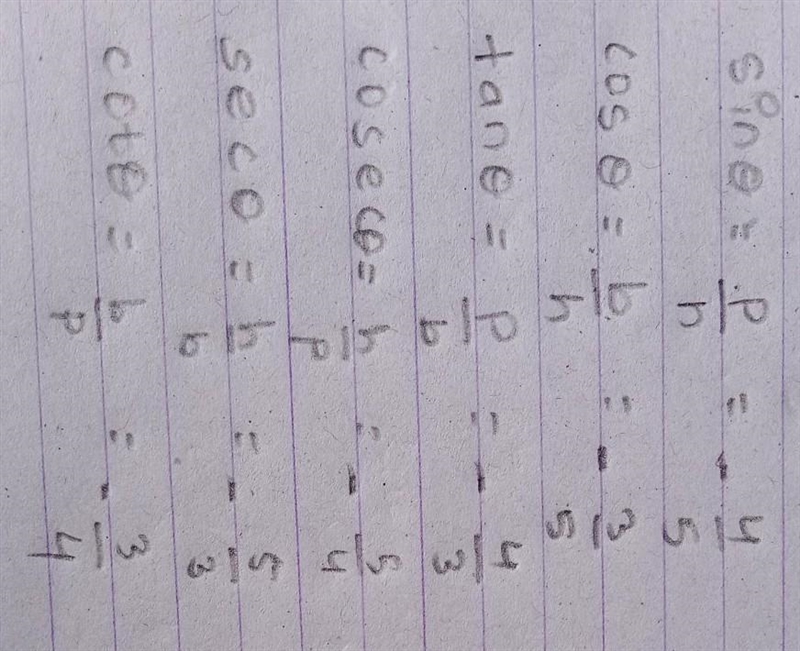 sinθ = p/h = - 4/5
cosθ = b/h = - 3/5
tanθ = p/b = - 4/3
cosecθ = h/p = - 5/4
secθ = h/b = - 5/3
cotθ = b/p = - 3/4